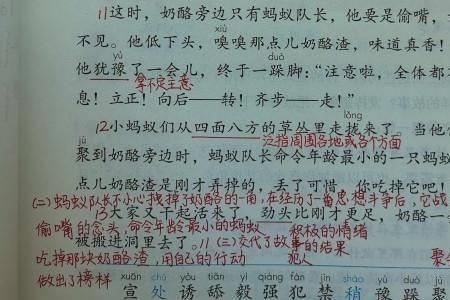 11这时，奶酪旁边只有蚂蚁队长，他要是偷嘴，
xiù
不见。他低下头，嗅嗅那点儿奶酪渣，味道真香！
yù duò
他犹豫了一会儿，终于一跺脚：“注意啦，全体都
拿不定主意
息！立正！向后——转！齐步——走！”
lǒng
12小蚂蚁们从四面八方的草丛里走拢来了。当他们
jù
泛指周围各地或各个方面
聚到奶酪旁边时，蚂蚁队长命令年龄最小的一只蚂蚁
点儿奶酪渣是刚才弄掉的，丢了可惜，你吃掉它吧！
(二)蚂蚁队长不小心拽掉了奶酪的一角，在经历了一番思想斗争后，它战
13大家又干起活来了，劲头比刚才更足，奶酪一
偷嘴的念头，命令年龄最小的蚂蚁 积极的情绪
被搬进洞里去了。11(三)交代了故事的结果
吃掉那块奶酪渣，用自己的行动 犯人
做出了榜样
xuān chǔ yòu tiǎn yì qiáng fàn jìn shāo yù duò jù
宣 处 诱 舔 毅 强 犯 禁 稍 豫 跺 聚